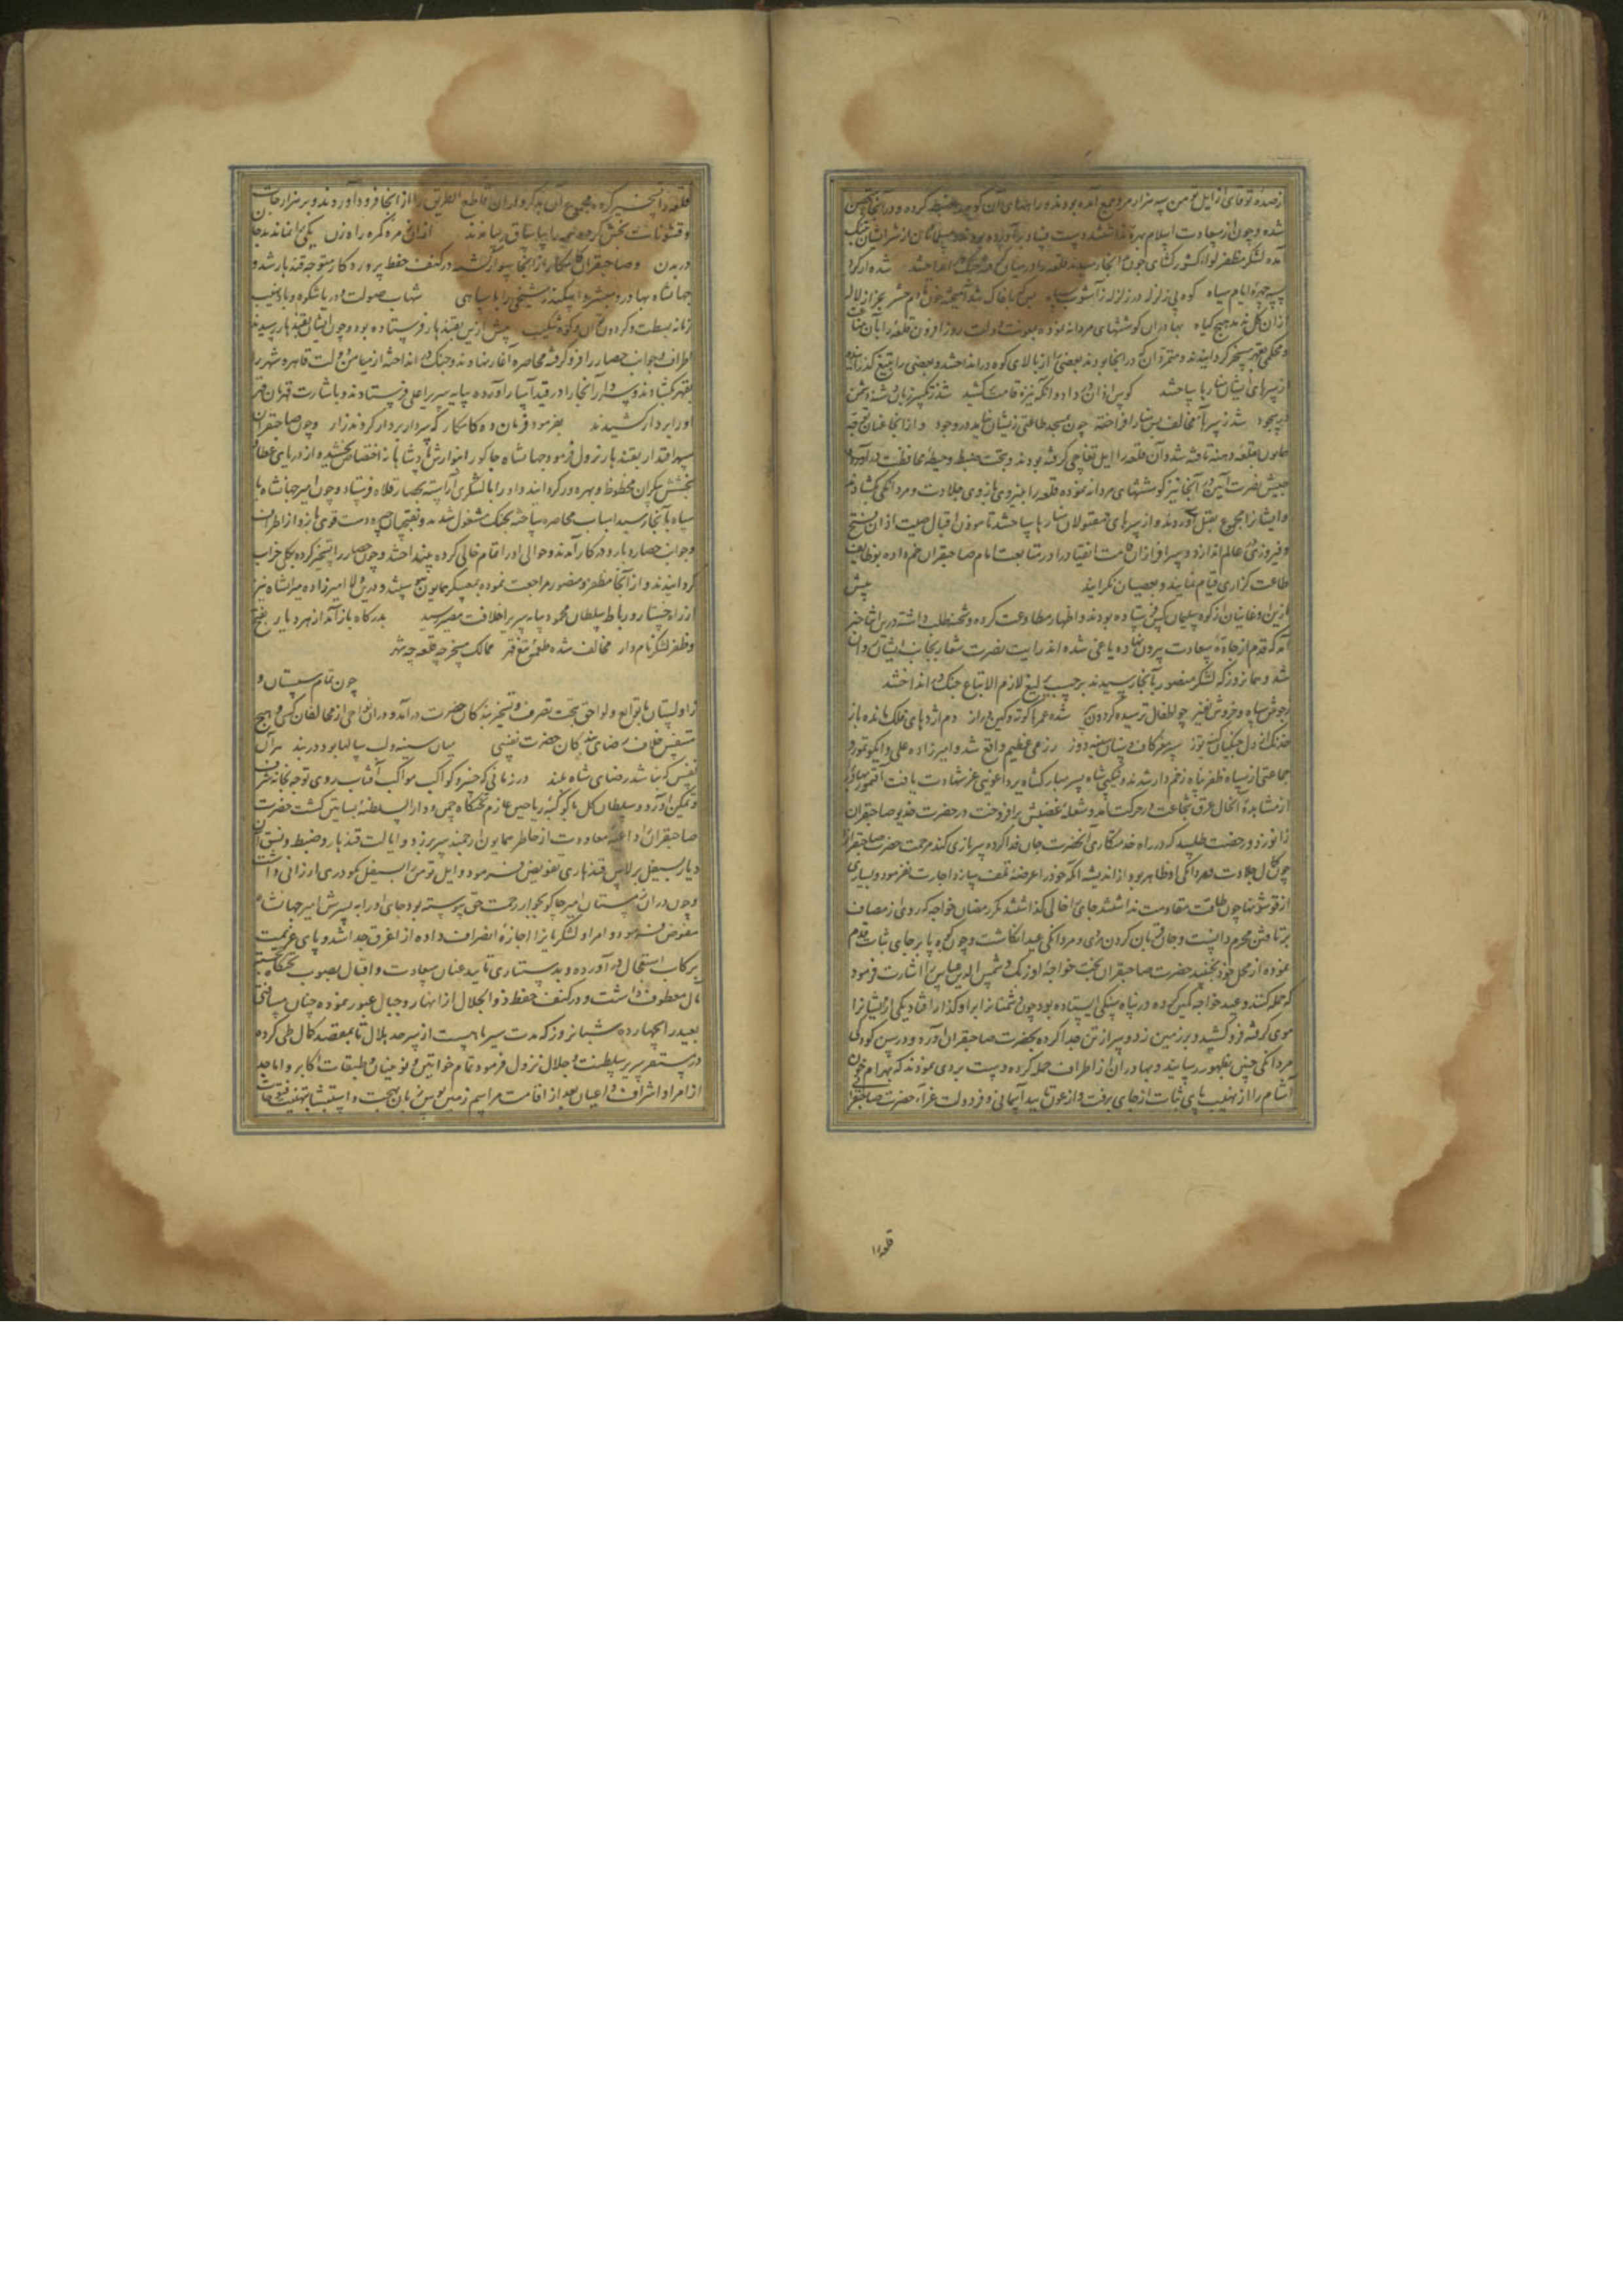 از صده توقای از ایل تومن سه هزار مرد جمع آمده بودند و راههای آن کوه ضبط کرده و در آنجا متحصن
شده و چون از سعادت اسلام بهره نداشتند دست بیداد برآورده بودند و مسلمانان از شر ایشان بتنگ
آمده لشکر مظفر لواء کشورگشای چون آنجا رسیدند قلعه را در میان گرفته جنگ در انداختند شد از گرد
سپه چهرهٔ ایام سیاه کوه پی زلزله در زلزله ز آشوب سپاه بس که با خاک شد آمیخته خون تا دم حشر بجز از لاله
از ان گل ندمد هیچ گیاه بهادران کوششهای مردانه نموده بمعونت دولت روز افزون قلعه را بآن متانت
و محکمی بقهر مسخر گردانیدند و متمردان که در آنجا بودند بعضی را از بالای کوه در انداختند و بعضی را بتیغ گذرانیده
از سرهای ایشان منارها ساختند کوس اذان داد و انگه نیزه قامت کشید شد ز تکبیر زبان شنه دشمن
در سجود شد ز سرهای مخالف بس منار افراخته چون مسجد طاعتی زیشان نیامد در وجود و از آنجا عنان توجه
همایون بقلعه دهنه تافته شد و آن قلعه را ایل تغاچی گرفته بودند و بتحت ضبط و حیطه محافظت در آورده
جیش نصرت آیین در آنجا نیز کوششهای مردانه نموده قلعه را بنیروی بازوی جلادت و مردانگی بگشادند
و ایشانرا مجموع بقتل آوردند و از سرهای مقتولان منارها ساختند تا موذن اقبال صیت اذان فتح
و فیروزی در عالم اندازد و سرافرازان قامت انقیاد را در متابعت امام صاحبقران خم داده بوظایف
طاعت گزاری قیام نمایند و بعصیان نگرایند پیش
ازین اوغانیان از کوه سلیمان کس فرستاده بودند و اظهار مطاوعت کرده و شحنه طلب داشته درین اثنا خبر
آمد که قدم از جادهٔ سعادت بیرون نهاده یاغی شده اند رایت نصرت شعار بجانب ایشان روان
شد و همان روز که لشکر منصور بآنجا رسیدند برحسب یرلیغ لازم الاتباع جنگ در انداختند
ز جوش سپاه و خروش نفیر چو اطفال ترسیده گردون پیر شده عمرها کوته و کین دراز دم اژدهای فلک مانده باز
خدنک از دل جنگیان کینه توز سپر مغز کاف و سنان سینه دوز رزمی عظیم واقع شد و امیرزاده علی و ایکو تمور و
جماعتی از سپاه ظفر پناه زخم دار شدند و نیکپی شاه پسر مبارکشاه بردالغویی عز شهادت یافت آقتمور بهادر
از مشاهدهٔ آنحال عرق شجاعت در حرکت آمد و شعلهٔ غضبش برافروخت در حضرت خدیو صاحبقران
زانو زد و رخصت طلبید که در راه خدمتکاری آنحضرت جان فدا کرده سربازی کند مرحمت حضرت صاحبقران
چون کمال جلادت و مردانگی او ظاهر بود از اندیشه آنکه خود را عرضه تلف سازد اجازت نفرمود و بسیاری
از قوشونها چون طاقت مقاومت نداشتند جای خالی گذاشتند مگر رمضان خواجه که روی از مصاف
برتافتن محرم دانست و جان قربان کردن دری و مردانگی عید انگاشت و چون کوه پا برجای ثبات قدم
نموده از محل خود نجنبید حضرت صاحبقران بخت خواجه اوزبک و شمس الدین عباس را اشارت فرمود
که حمله کنند و عبد خواجه کس کرده در پناه سنگی ایستاده بود چون دشمنانرا بر او گذار افتاد یکی از ایشانرا
موی گرفته فرو کشید و بر زمین زد و سر از تن جدا کرده بحضرت صاحبقران آورد و در سن کودکی
مردانگی چنین بظهور رسانید و بهادران از اطراف حمله کرده دست بردی نمودند که بهرام خون
آشام را از نهیب پای ثبات از جای برفت و از عون تایید آسمانی و فر دولت غراء حضرت صاحبقرانی
قلعه را
قلعه را تسخیر کرده مجموع آن بدکرداران قاطع الطریق را از آنجا فرود آوردند و بر هزارجات
و قشونات بخش کرده همه را بیاساق رسانیدند از ان زمره گمره راه زن یکی را نماندند جان
در بدن و صاحبقران کامکار از آنجا سوار گشته در کنف حفظ پروردگار متوجه قندهار شد و
جهانشاه بهادر و مبشر و اسکندر شیخی را با سپاهی شهاب صولت و دریا شکوه و باد نهیب
زمانه بسطت و گردون توان و کوه شکیب پیش ازین بقندهار فرستاده بود و چون ایشان بقندهار رسیدند
اطراف و جوانب حصار را فرو گرفته محاصره آغاز نهادند و جنگ در انداخته از میامن دولت قاهره شهر را
بقهر بگشادند و سردار آنجا را در قید آسار آورده بپایه سریر اعلی فرستادند و باشارت قهرمان قهر
او را بر دار کشیدند بفرمود فرمان ده کامکار که سردار بر دار کردند زار و چون صاحبقران
سپهر اقتدار بقندهار نزول فرمود جهانشاه جاکو را بنوازش پادشاهانه اختصاص بخشیده از دریای عطا و
بخشش بیکران محظوظ و بهره ور گردانید و او را با لشکری آراسته بحصار قلات فرستاد و چون امیر جهانشاه با
سپاه بآنجا رسید اسباب محاصره ساخته بجنگ مشغول شدند و نقبچیان چیره دست قوی بازو از اطراف
و جوانب حصار و بارو در کار آمدند و حوالی او را تمام خالی کرده بینداختند و چون حصار را تسخیر کرده بکل خراب
گردانیدند و از آنجا مظفر و منصور مراجعت نموده بمعسکر همایون پیوستند و درین ولا امیرزاده میرانشاه نیز
از راه جستار و رباط سلطان محمود بپایه سریر خلافت مصیر رسید بدرگاه بازآمد از هر دیار بفتح
و ظفر لشکر نام دار مخالف شده طعمهٔ تیغ قهر ممالک مسخر چه قلعه چه شهر
چون تمام سیستان و
زاولستان با توابع و لواحق بتحت تصرف و تسخیر بندگان حضرت درآمد و در ان نواحی از مخالفان کسی و هیچ
متنفس خلاف رضای بندگان حضرت نفسی میان سینه و لب سالها بود در بند هر آن
نفس که نباشد رضای شاه بلند در زمانی که خسرو کواکب مواکب آفتاب روی توجه بخانه شرف
و تمکین آورد و سلطان گل با کوکبهٔ ریاحین عازم تختگاه چمن و دار السلطنه بساتین گشت حضرت
صاحبقران را داعیه معاودت از خاطر همایون ارجمند سر بر زد و ایالت قندهار و ضبط و نسق آن
دیار بسیفل برلاس قندهاری تفویض فرمود و ایل تومن را بسیفل نکودری ارزانی داشت
و چون در ان زمستان امیر جاکو بجوار رحمت حق پیوسته بود جای او را به پسرش امیر جهانشاه
مفوض فرمود و امرا و لشکریانرا اجازهٔ انصراف داده از اغرق جدا شد و پای عزیمت
بر کاب استعجال درآورده و بدستیاری تایید عنان سعادت و اقبال بصوب تختگاه
معطوف داشت و در کنف حفظ ذو الجلال از انهار و جبال عبور نموده چنان مسافتی
بعید را بچهارده شبانروز که مدت سیر ماهست از سرحد هلال تا بمقصد کمال طی کرده
در مستقر سریر سلطنت و جلال نزول فرمود تمام خواتین و نوینان و طبقات اکابر و اماجد
از امرا و اشراف و اعیان بعد از اقامت مراسم زمین بوس زبان بهجت و استبشار بتهنیت فتوحات